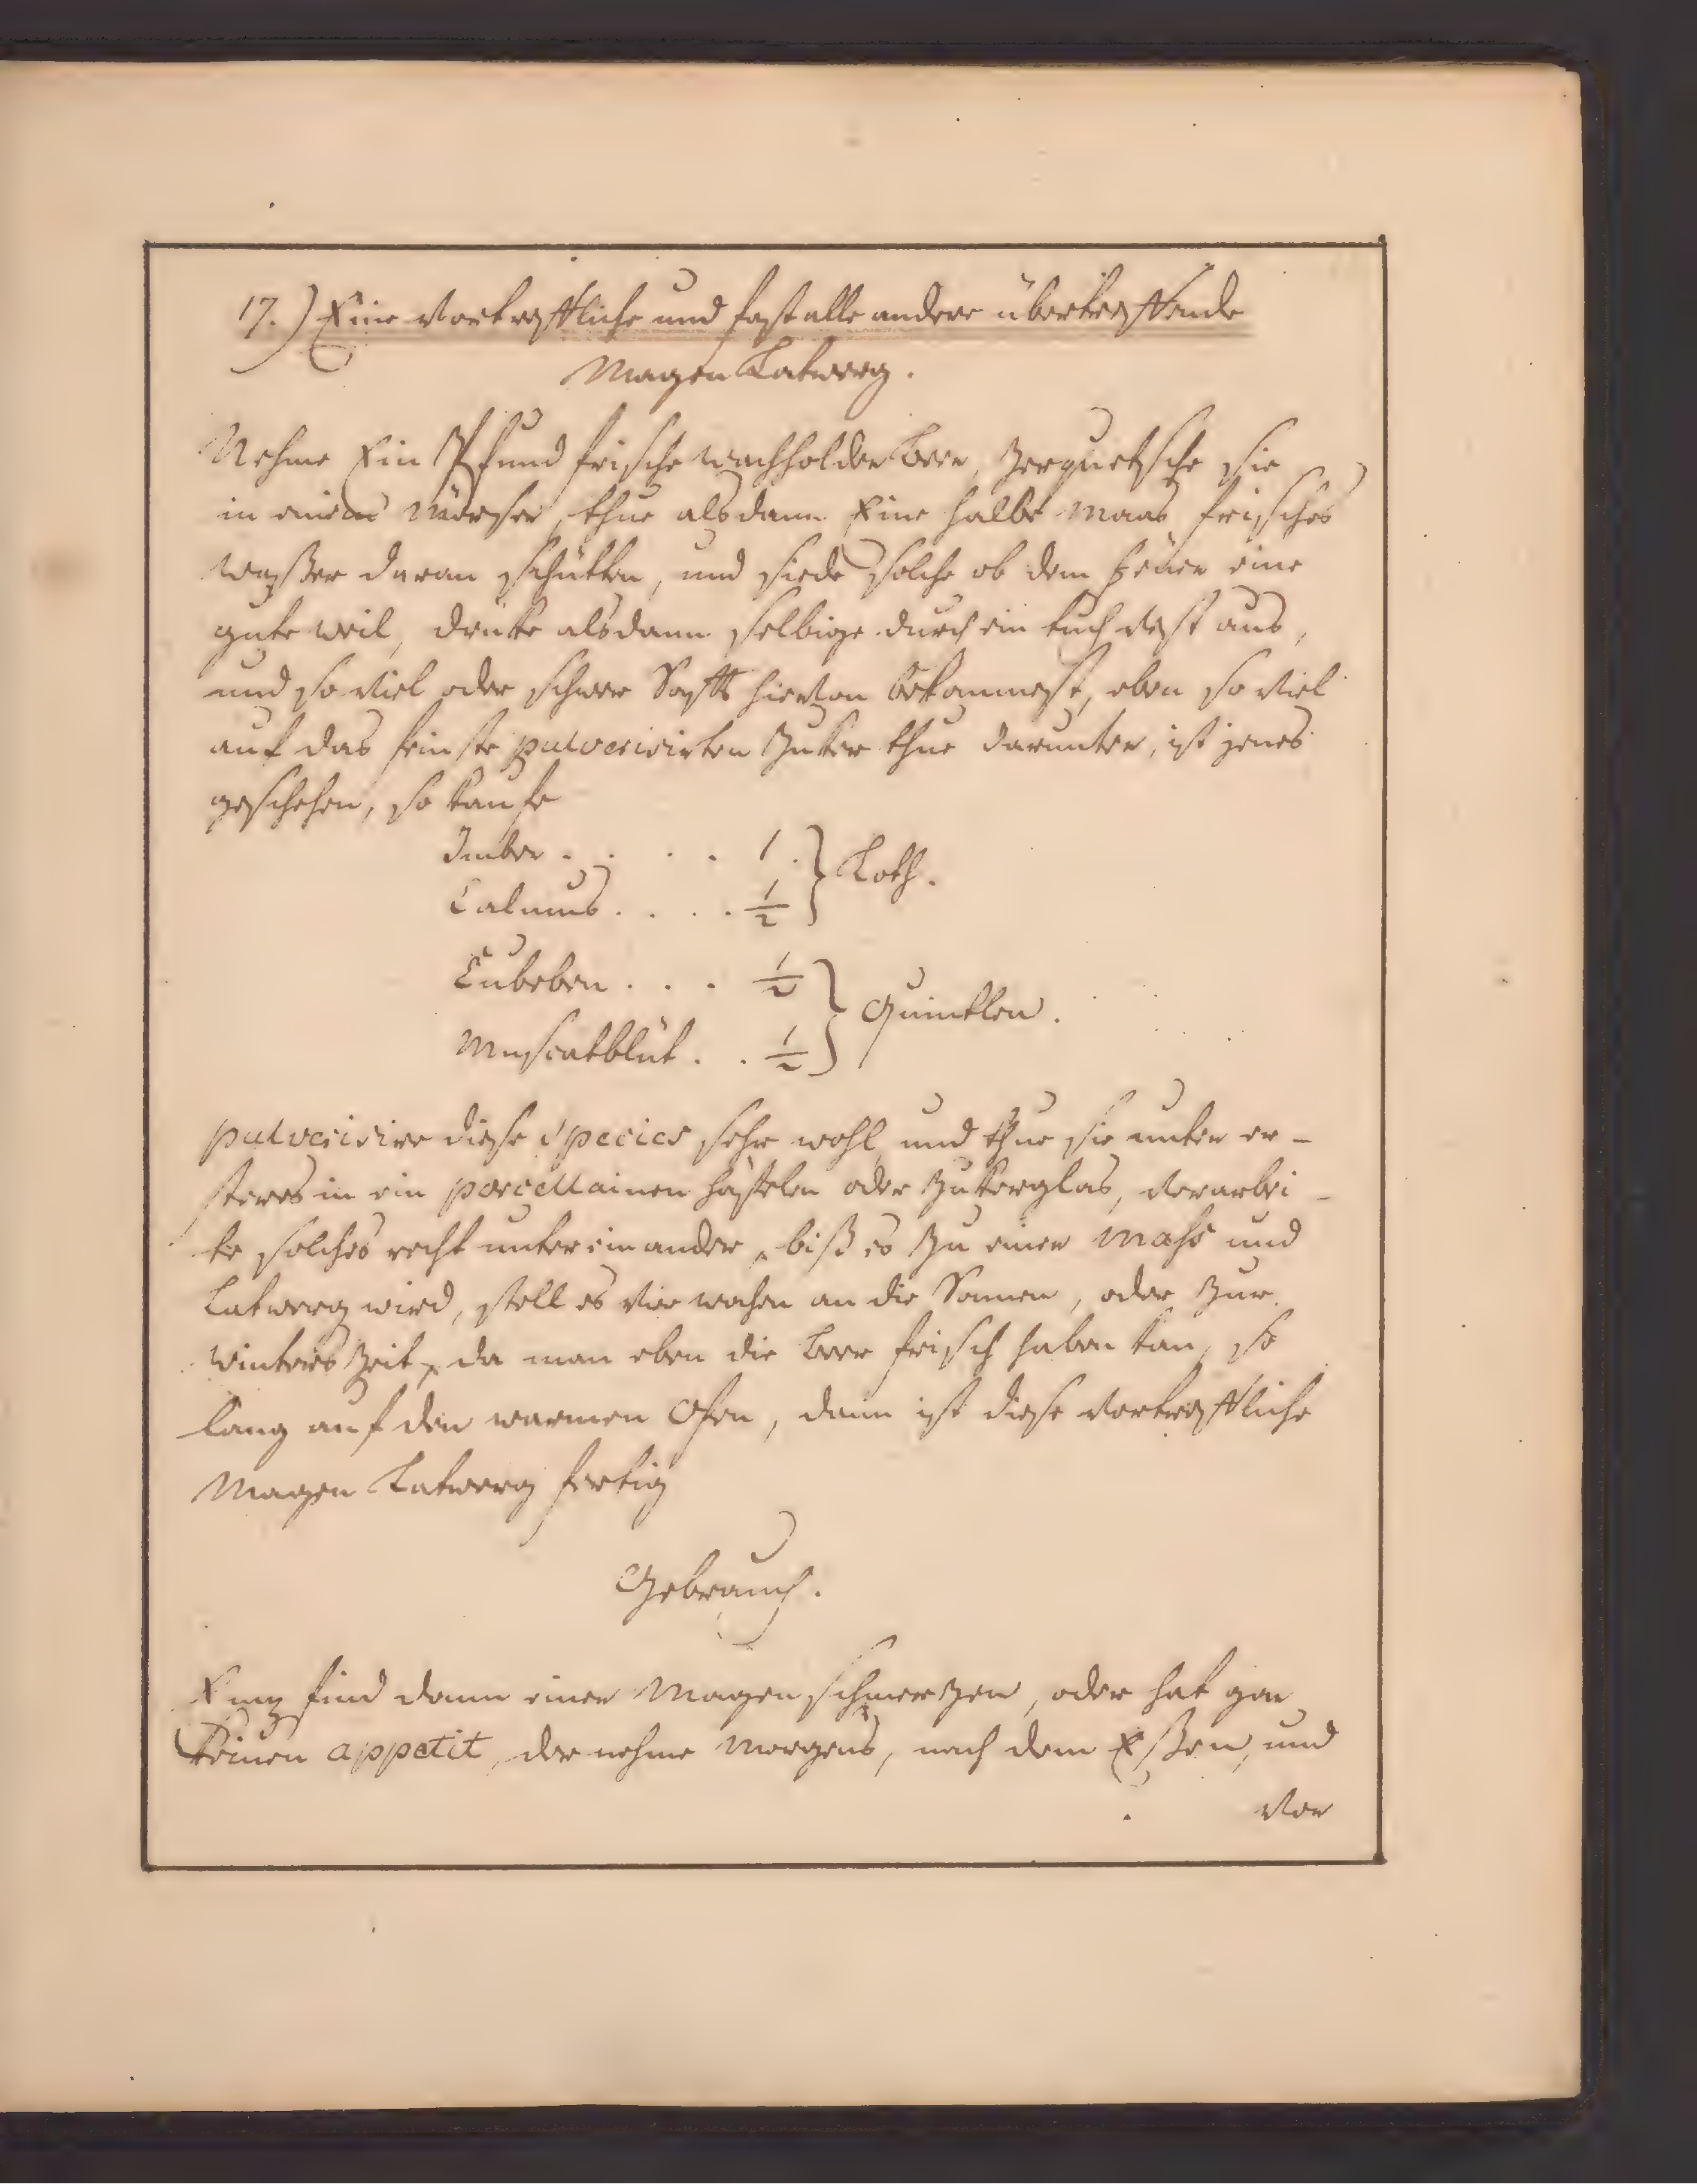 17.) Eine Vortreffliche und fast alle andere übertreffende
Magen Latwerg.
Nehme Ein Pfund frische wachholder Beer, zerquetsche sie
in einem Mörser, thue alsdann Eine halbe Maas frisches
waßer daran schütten, und siede solche ob dem Feüer eine
gute weil, druke alsdann selbige durch ein tuch vest aus,
und so viel oder schwer Saffts hiervon bekommest, eben so viel
auf das feinste pulverisirten Zuker thue darunter, ist jenes
geschehen, so kaufe
Imber . . . . 1 } Loth.
Calmus . . . . 1/2
Cubeben . . . 1/2 } Quintlen.
Muscatblüt . . 1/2
pulverisire diese Species sehr wohl, und thue sie unter er-
steres in ein porcellainen häfelen oder Zukerglas, verarbei-
te solches recht unter einander, biß es zu einer Mass und
Latwerg wird, stell es vier wochen an die Sonnen, oder zur
winters Zeit, da man eben die Beer frisch haben kan, so
lang auf den warmen Ofen, dann ist diese Vortreffliche
Magen Latwerg fertig
Gebrauch.
Empfind dann einer Magen schmerzen, oder hat gar
keinen appetit, der nehme Morgens, nach dem Eßen, und
vor